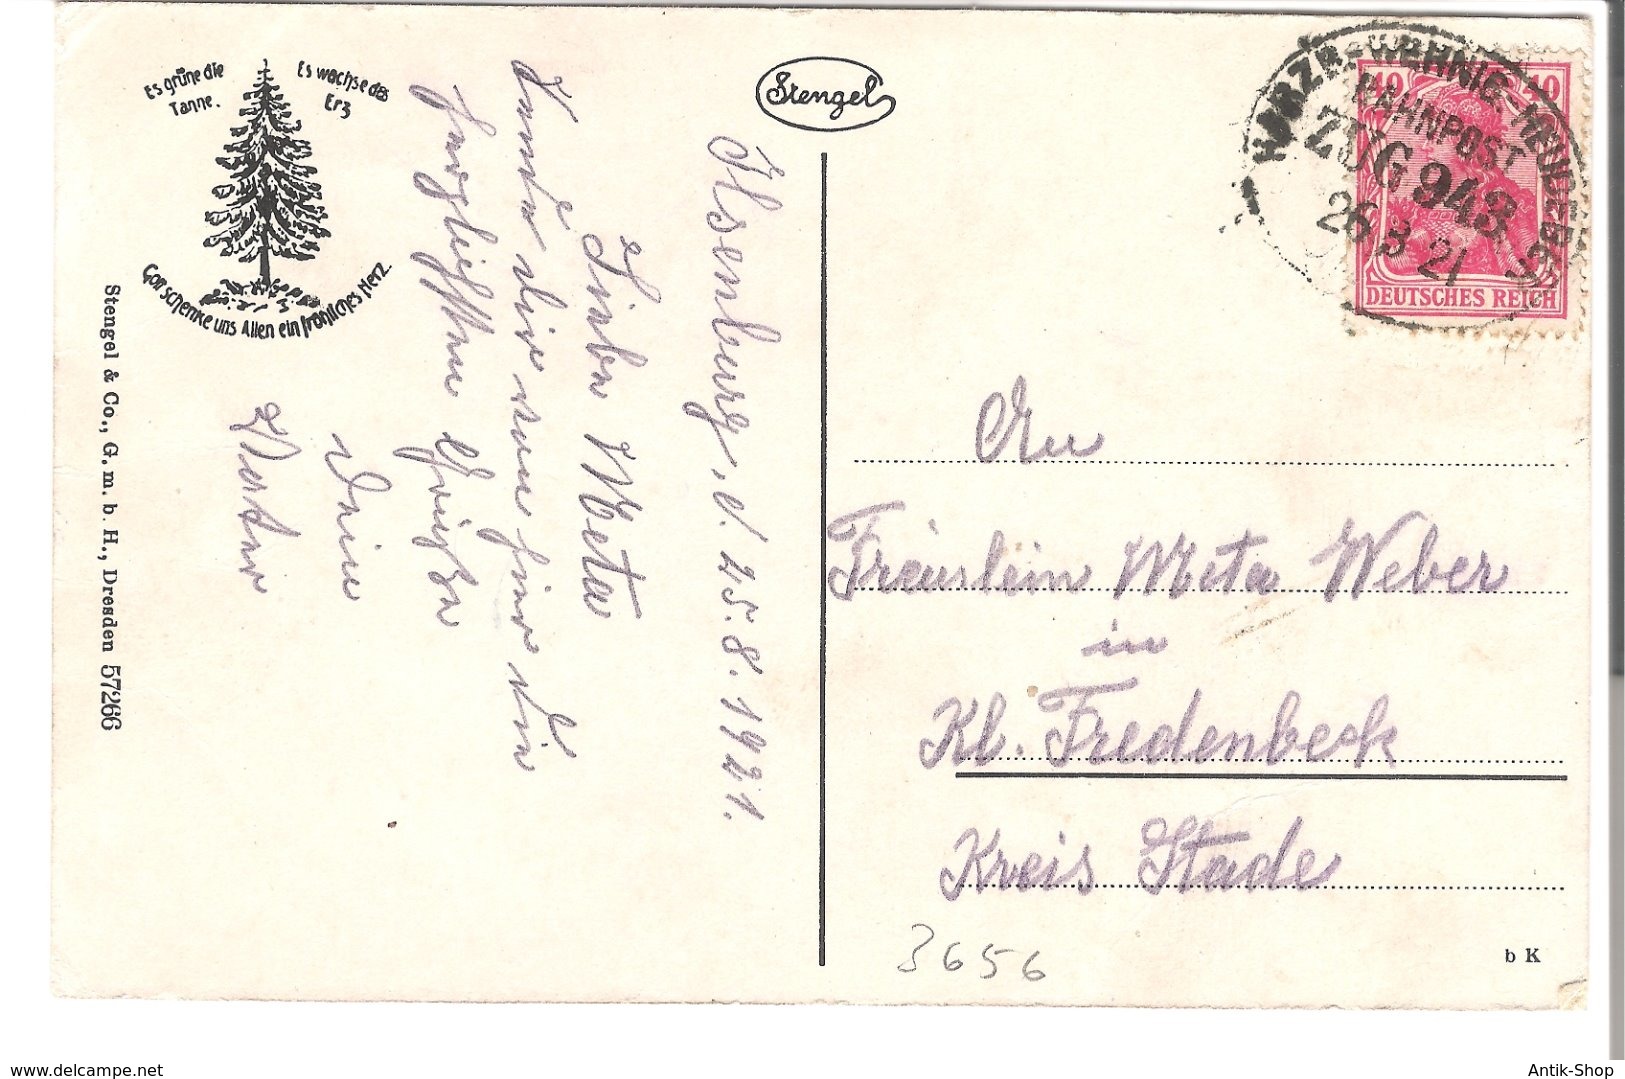 Es grüne die
Tanne.
Es wachse das
Erz
Gott schenke uns Allen ein fröhliches Herz.
Stengel & Co., G. m. b. H., Dresden 57266
Stengel
Ilsenburg, d. 25.8.1921.
Liebe Meta
Sende dir von hier die
herzlichsten Grüße
Dein
Vater
BAHNPOST
ZUG 943
26 8 21
40 40
DEUTSCHES REICH
An
Fräulein Meta Weber
in
Kl. Fredenbeck
Kreis Stade
3656
b K
www.delcampe.net
Antik-Shop